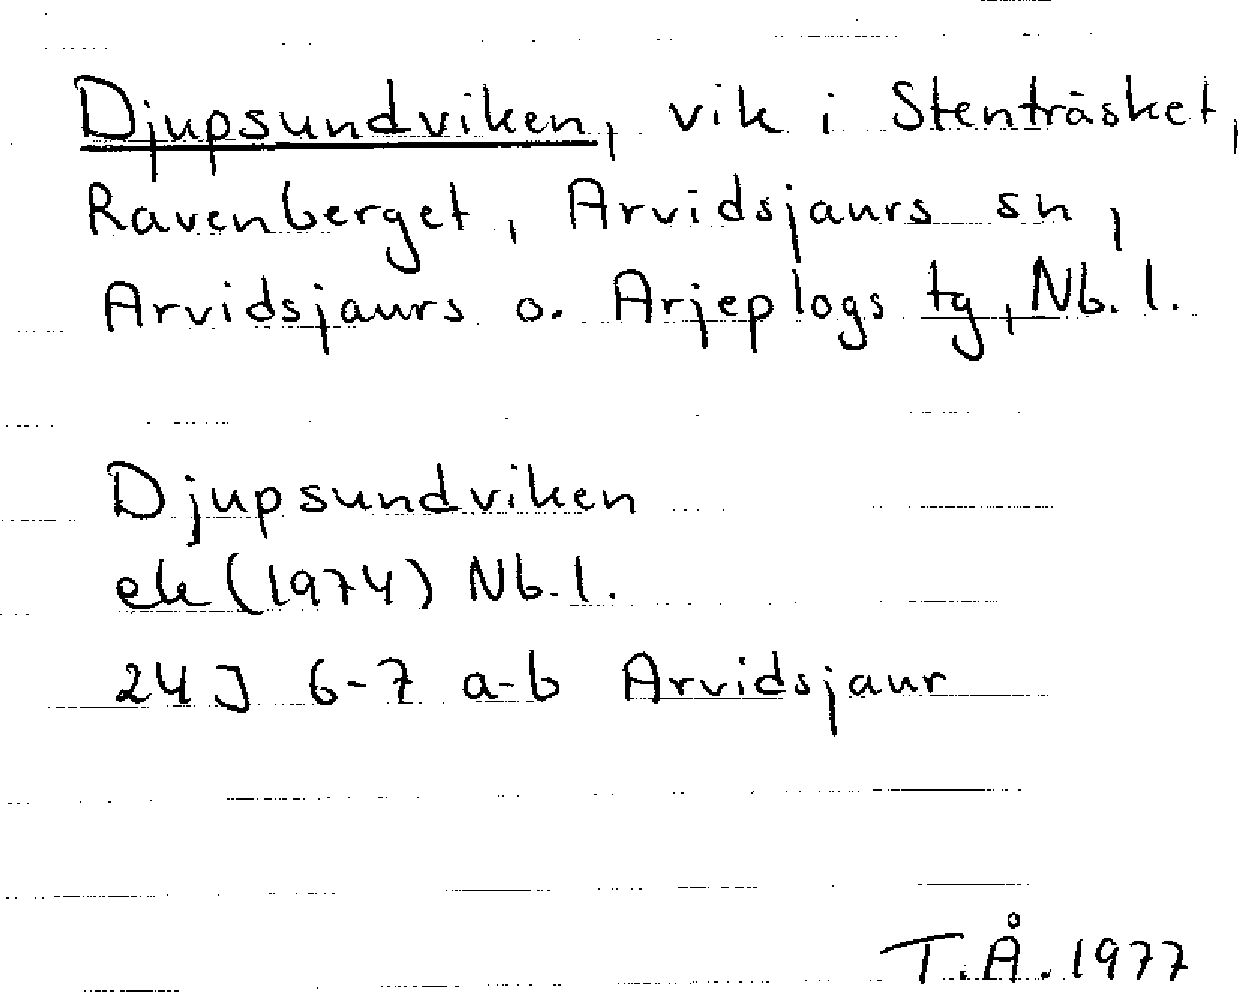 Djupsundviken, vik i Stenträsket,
Ravenberget, Arvidsjaurs sn,
Arvidsjaurs o. Arjeplogs tg, Nb. l.
Djupsundviken
ek (1974) Nb. l.
24J 6-7 a-b Arvidsjaur
T.Å. 1977